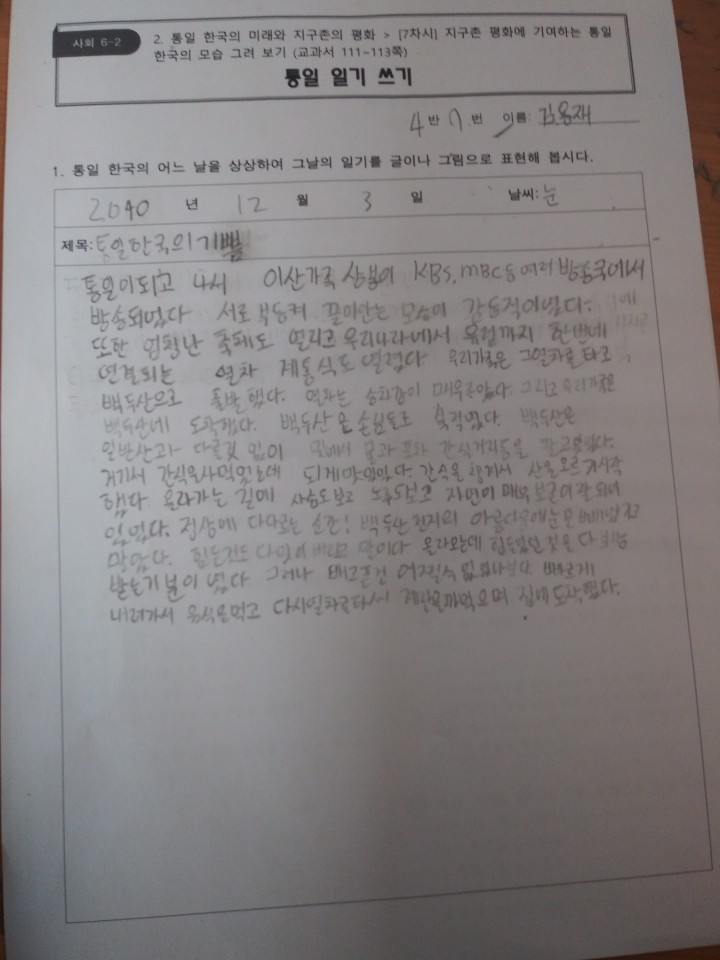 사회 6-2
2. 통일 한국의 미래와 지구촌의 평화 > [7차시] 지구촌 평화에 기여하는 통일
한국의 모습 그려 보기 (교과서 111~113쪽)
통일 일기 쓰기
4 반 7 번 이름: 김용재
1. 통일 한국의 어느 날을 상상하여 그날의 일기를 글이나 그림으로 표현해 봅시다.
2040 년 12 월 3 일 날씨: 눈
제목: 통일한국의 기쁨
통일이되고 이산가족 상봉이 KBS, MBC등 여러 방송국에서
방송되었다 서로 부둥켜 끌어안는 모습이 감동적이었다.
또한 엄청난 축제도 열리고 우리나라에서 유럽까지 한번에
연결되는 열차 개통식도 열렸다 우리가족은 그열차를 타고
백두산으로 출발했다. 열차는 승차감이 매우좋았다. 그리고 우리가족은
백두산에 도착했다. 백두산은 손님들로 북적였다. 백두산은
일반산과 다를것 없이 물과 간식거리등을 팔고있었다.
거기서 간식을사먹었는데 되게맛있었다. 간식을 챙겨서 산을오르기시작
했다 올라가는 길에 사슴도보고 노루도보고 자연이 매우 보존이 잘 되어
있었다. 정상에 다다르는 순간! 백두산 천지의 아름다움에눈을 빼앗기고
말았다. 힘든것도 다잊어버리고 말이다 올라오는데 힘들었던 것을 다 보상
받는기분이 였다 그러나 배고픈건 어쩔수 없었나보다 빠르게
내려가서 음식을먹고 다시열차를타서 먹으며 집에 도착했다.